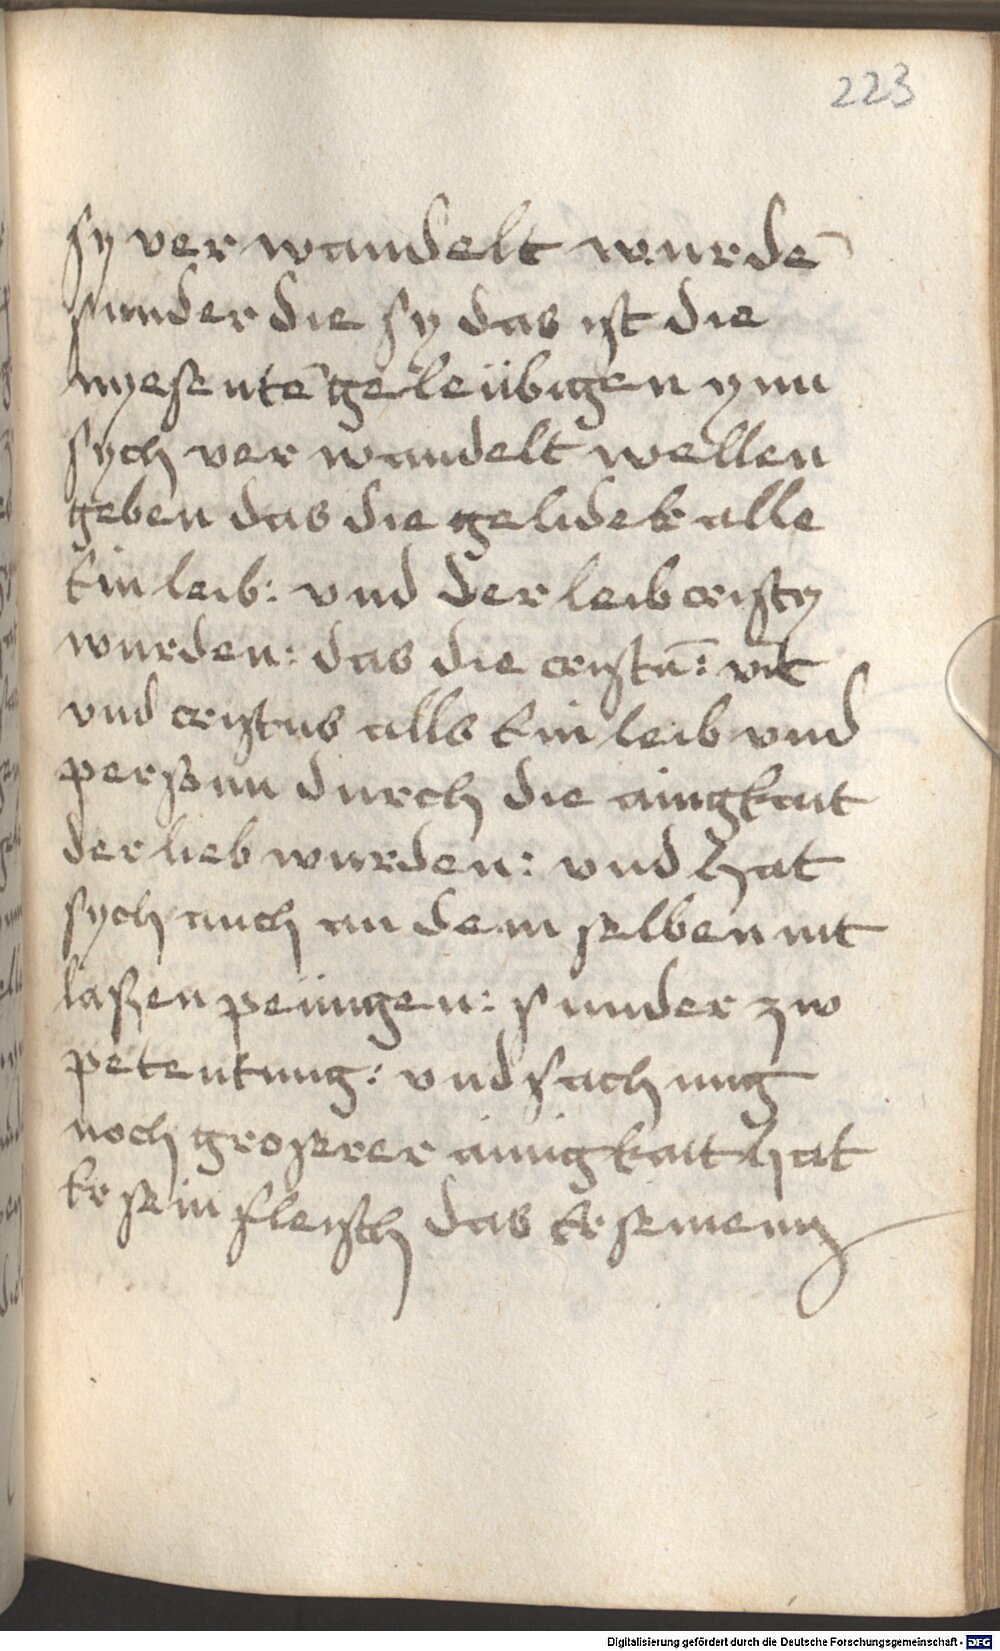 223
sy ver wandelt wurdē
sunder die sy das ist die
nyesentē geleübigen ynn
sych ver wandelt wellen
geben das die gelider alle
Ein leib: vnd der leib cristy
wurden: das die cristn̄:
vnd cristus alls Ein leib vnd
person durch die ainigkait
der lieb wurden: vnd hat
sych auch an dem selben nit
laßen penüngen: sunder zw
petentung: vnd sachung
noch groserer ainigkait hat
Er sein fleisch das Er seinem
Digitalisierung gefördert durch die Deutsche Forschungsgemeinschaft - DFG